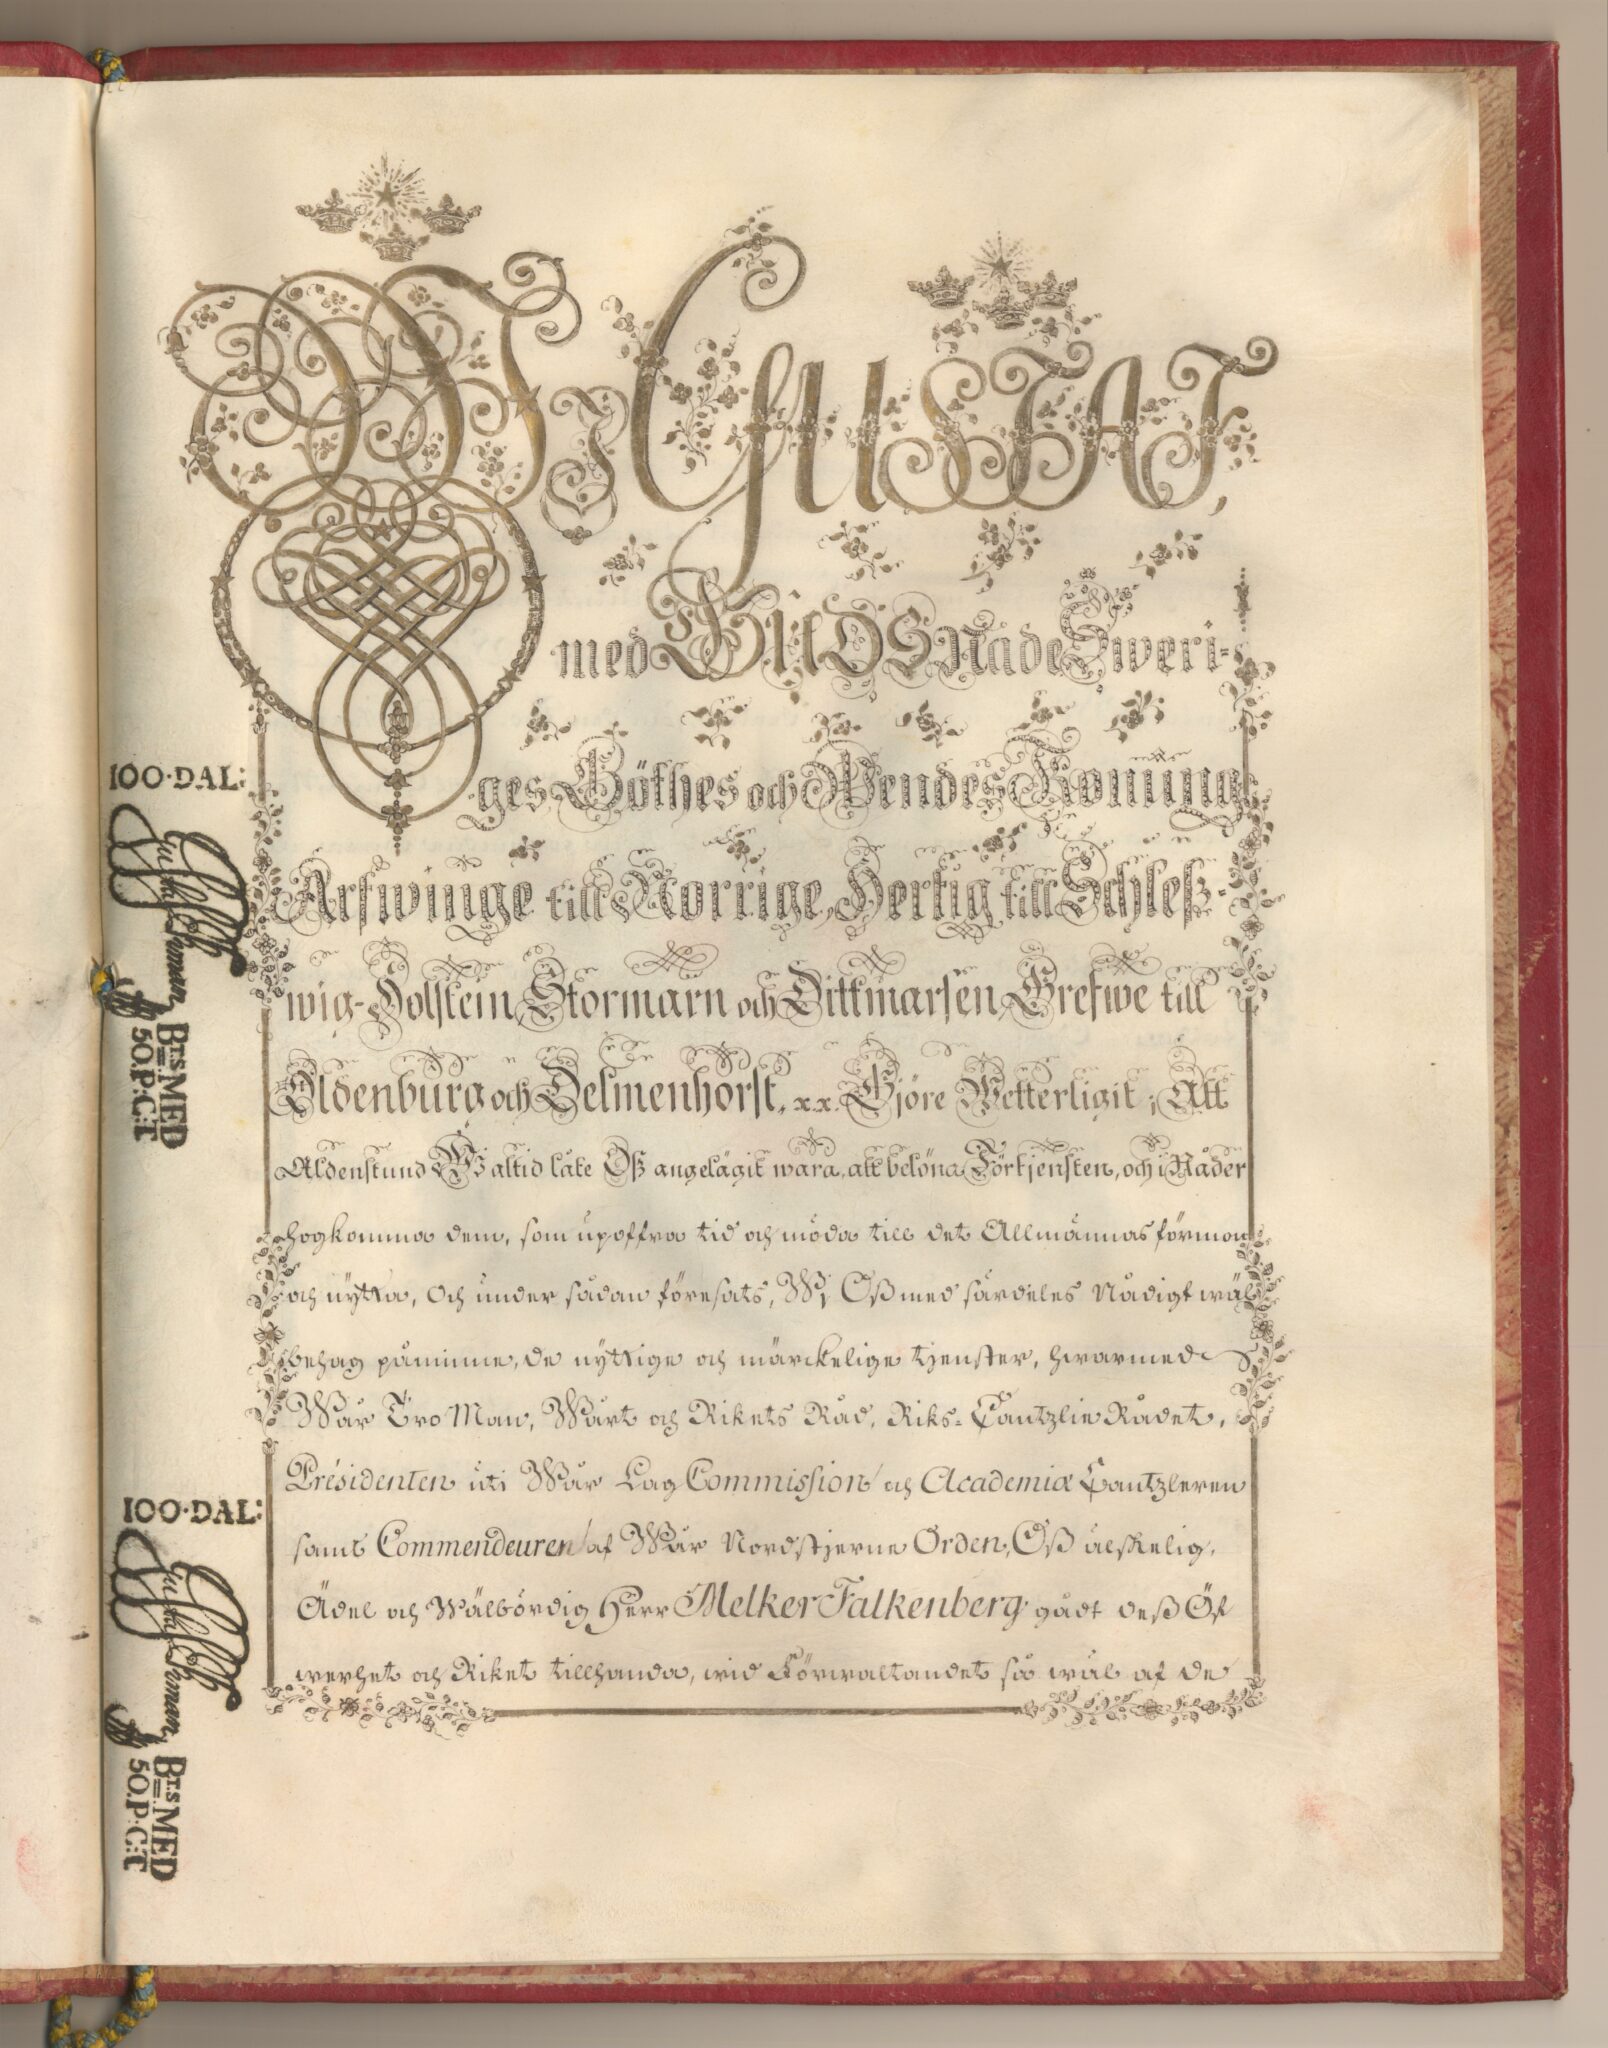 Wij GUSTAF,
med GUDS Nåde Sweri-
ges Göthes och Wendes Konung
Arfwinge till Norrige, Hertig till Schleß-
wig-Holstein, Stormarn och Dittmarsen, Grefwe till
Oldenburg och Delmenhorst, x.x. Gjöre Wetterligit; Att
Aldenstund Wi altid låte Oß angelägit wara, att belöna Förtjensten, och i Nåder
hogkomma dem, som upoffra tid och möda till det Allmännas förmon
och nytta, Och under sådan föresats, Wi Oß med särdeles Nådigt wäl
behag påminne, de nyttige och märckelige tjenster, hwarmed
Wår Tro Man, Wårt och Rikets Råd, Riks-Cantzlie Rådet,
Præsidenten uti Wår Lag Commission och Academiæ Cantzleren
samt Commendeuren af Wår Nordstjerne Orden, Oß älskelig,
Ädel och Wälbördig Herr Melker Falkenberg gådt deß Öf
werhet och Riket tillhanda, wid Förwaltandet så wäl af de
100·DAL:
Bts MED
50.P:C:T
100·DAL:
Bts MED
50.P:C:T